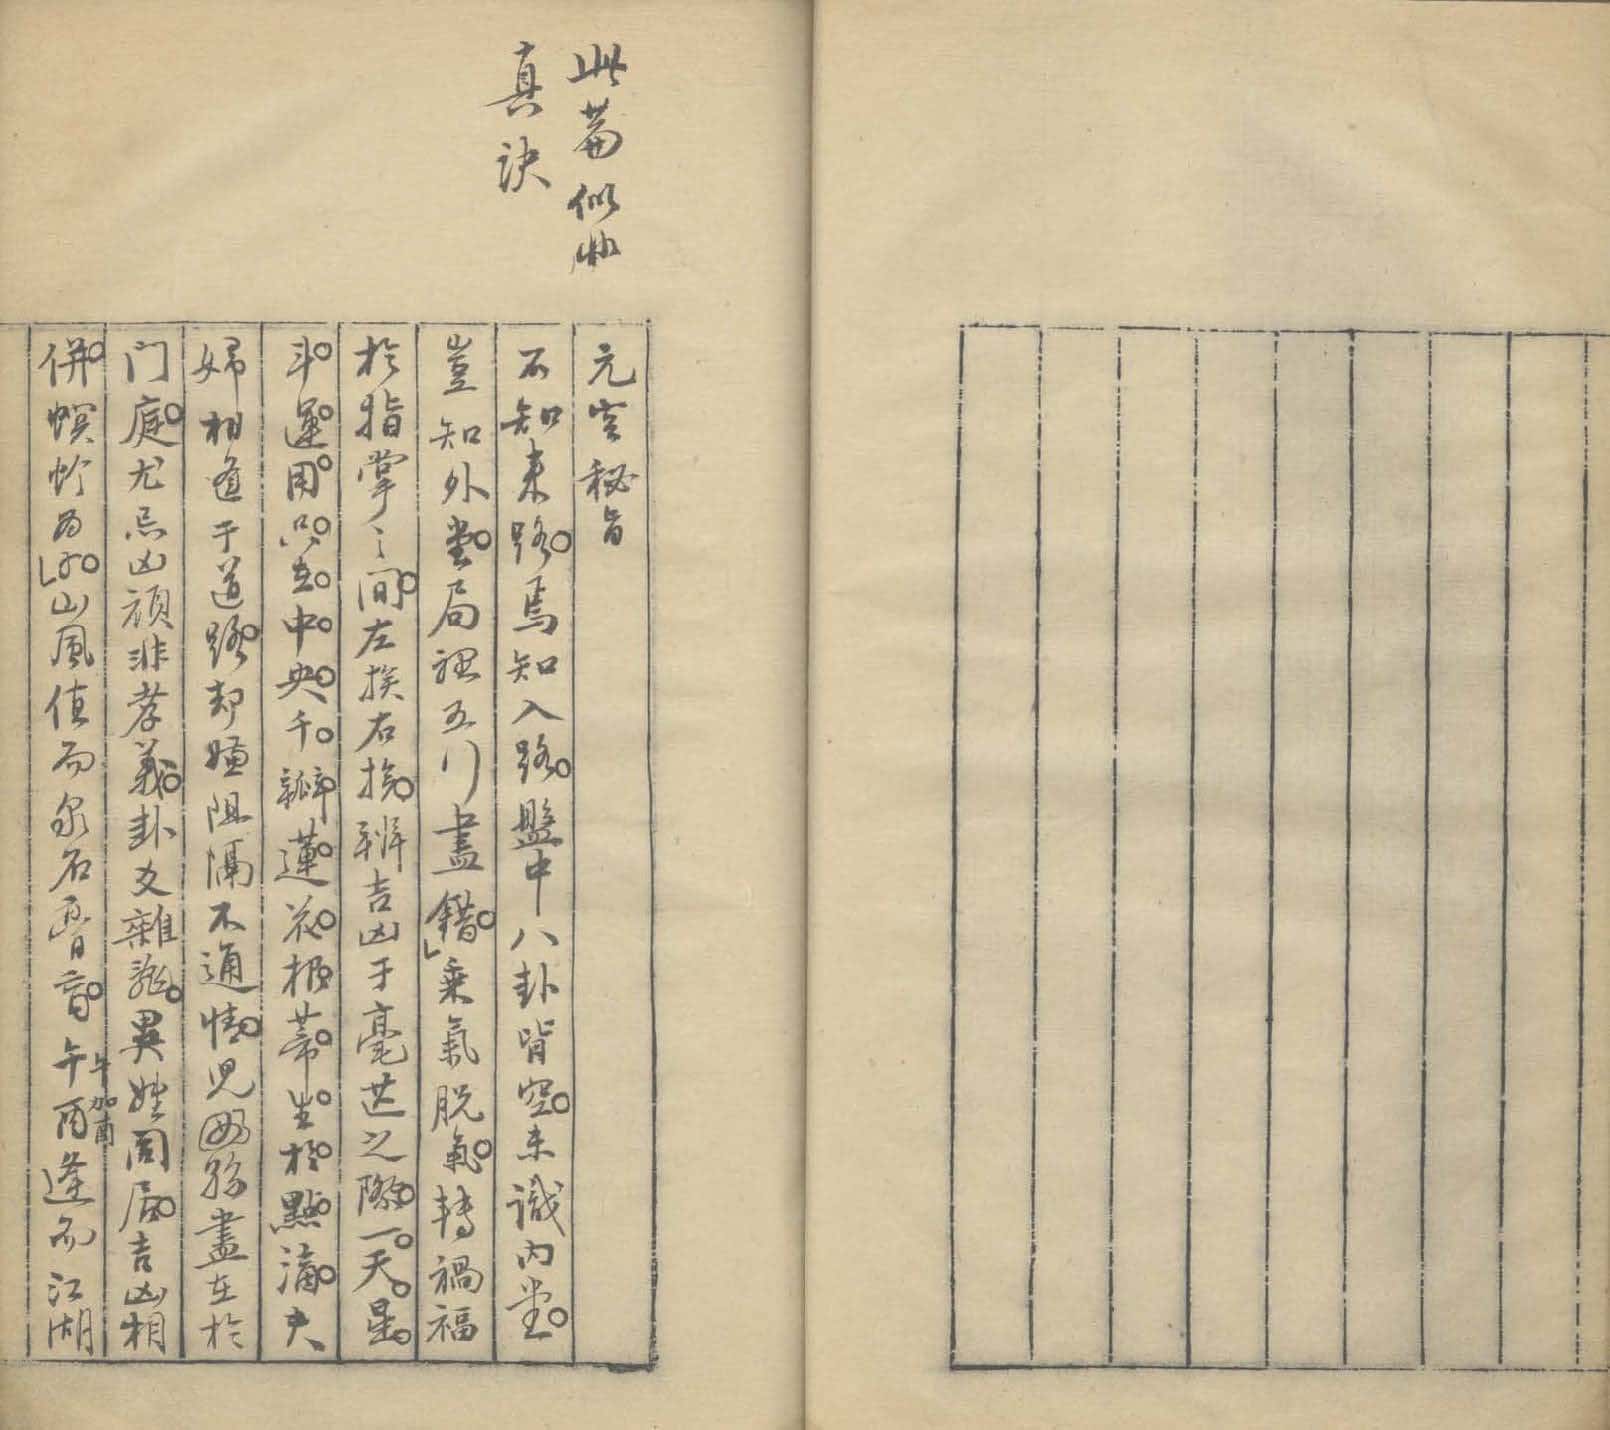 此篇似非
真訣
元空秘旨
不知來路焉知入路盤中八卦皆空未識內堂
豈知外堂局裡五行盡錯乘氣脫氣轉禍福
於指掌之間左挨右挨辨吉凶于毫芒之際一天星
斗運用只在中央千瓣蓮花根蒂生於點滴夫
婦相逢于道路却嫌阻隔不通情児孫盡在於
門庭尤忌凶頑非孝義卦爻雜亂異姓同居吉凶相
併螟蛉為嗣山風值而泉石膏肓午酉逢而江湖
午加酉